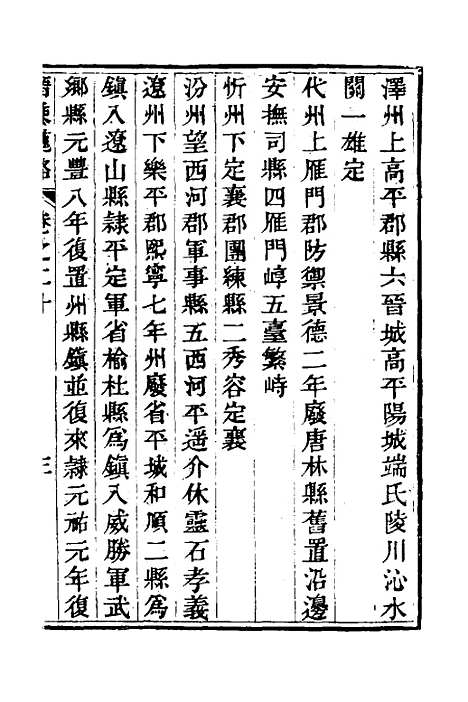 澤州上高平郡縣六晉城高平陽城端氏陵川沁水
關一雄定
代州上雁門郡防禦景德二年廢唐林縣舊置沿邊
安撫司縣四雁門崞五臺繁峙
忻州下定襄郡團練縣二秀容定襄
汾州望西河郡軍事縣五西河平遥介休靈石孝義
遼州下樂平郡熙寧七年州廢省平城和順二縣爲
鎮入遼山縣隸平定軍省榆杜縣爲鎮入威勝軍武
鄉縣元豐八年復置州縣鎭並復來隸元祐元年復
卷之二十
三